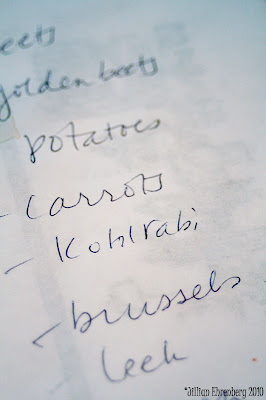 eets
golden beets
potatoes
- carrots
- kohlrabi
- brussels
leek
*Jillian Ehrenberg 2010